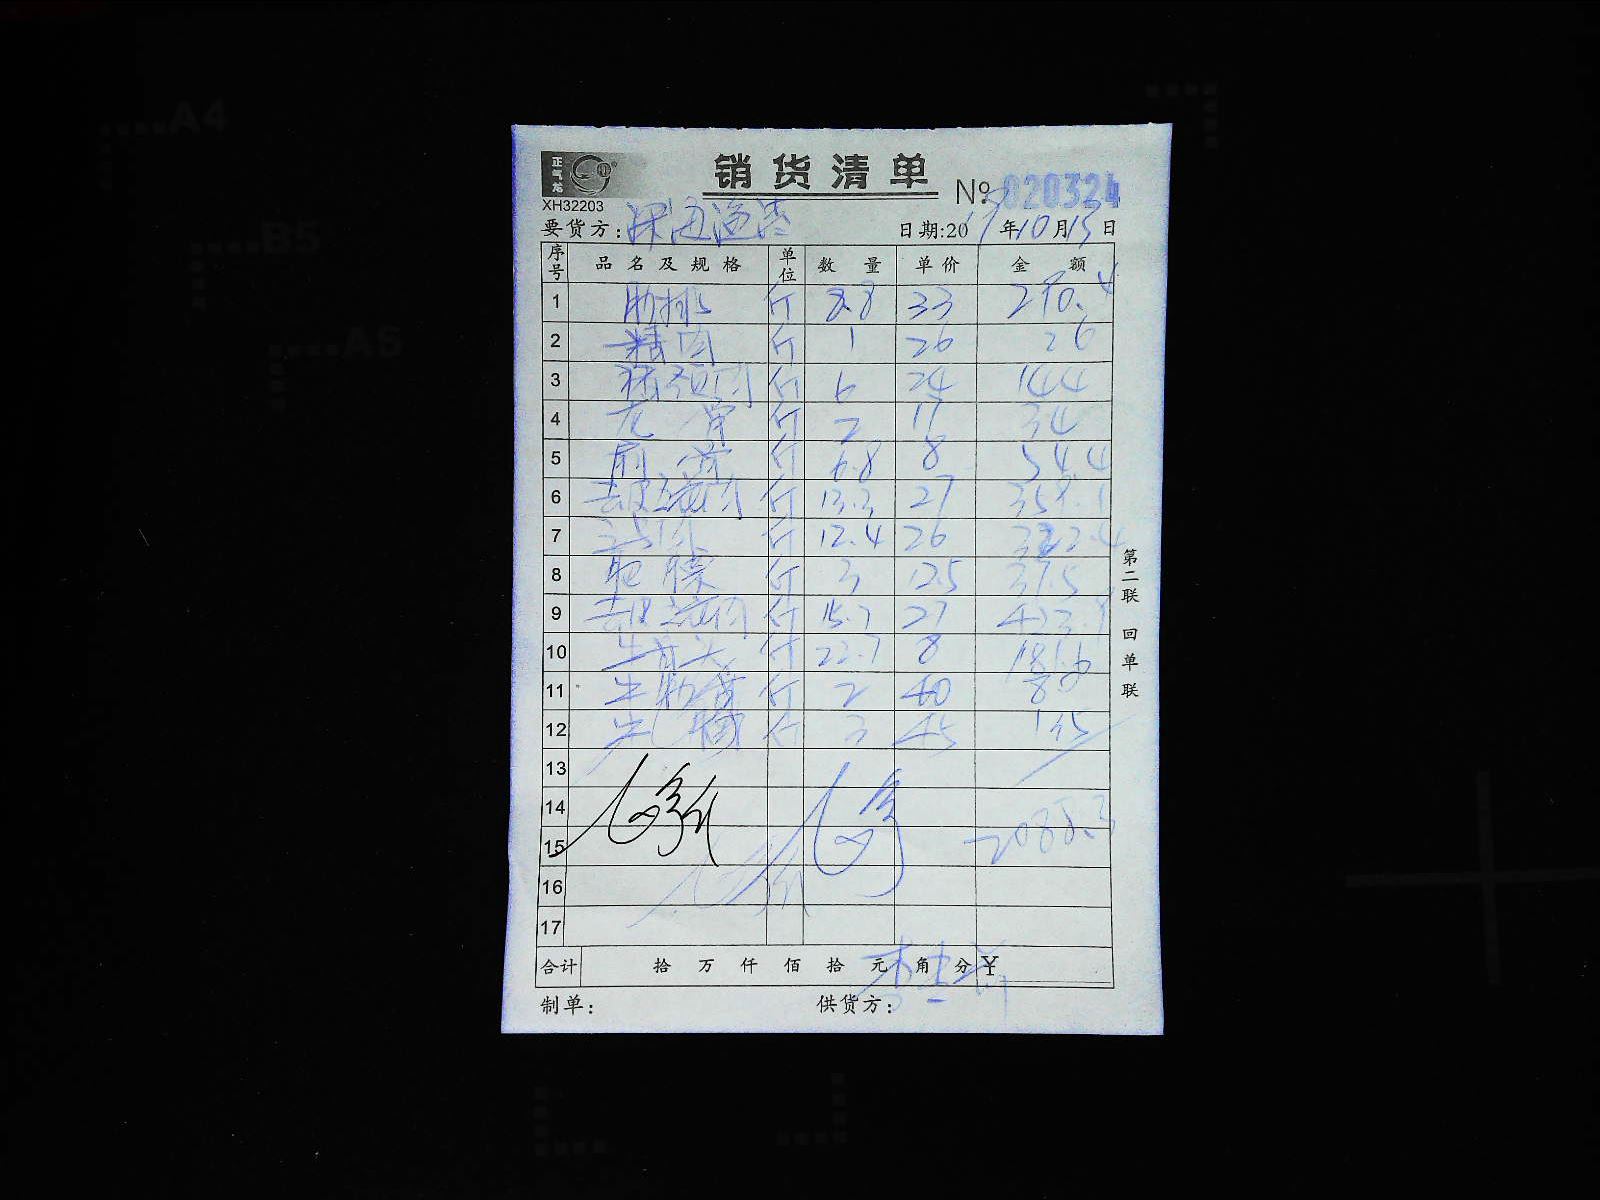 正气龙
销货清单
XH32203
№ 020324
要货方：深海渔港
日期:2019年10月13日
序号 品名及规格 单位 数量 单价 金额
1 肋排 斤 8.8 33 290.4
2 精肉 斤 1 26 26
3 猪颈肉 斤 6 24 144
4 龙骨 斤 2 17 34
5 扇骨 斤 6.8 8 54.4
6 去皮五花肉 斤 13.3 27 359.1
7 斤 12.4 26 322.4
8 肥膘 斤 3 12.5 37.5
9 去皮五花肉 斤 15.7 27 423.9
10 牛骨头 斤 22.7 8 181.6
11 牛肋 斤 2 40 80
12 牛腩 斤 3 45 135
13
14
2088.3
15
16
17
合计 拾 万 仟 佰 拾 元 角 分 ¥
制单：
供货方：
第二联 回单联
A4
B5
A5